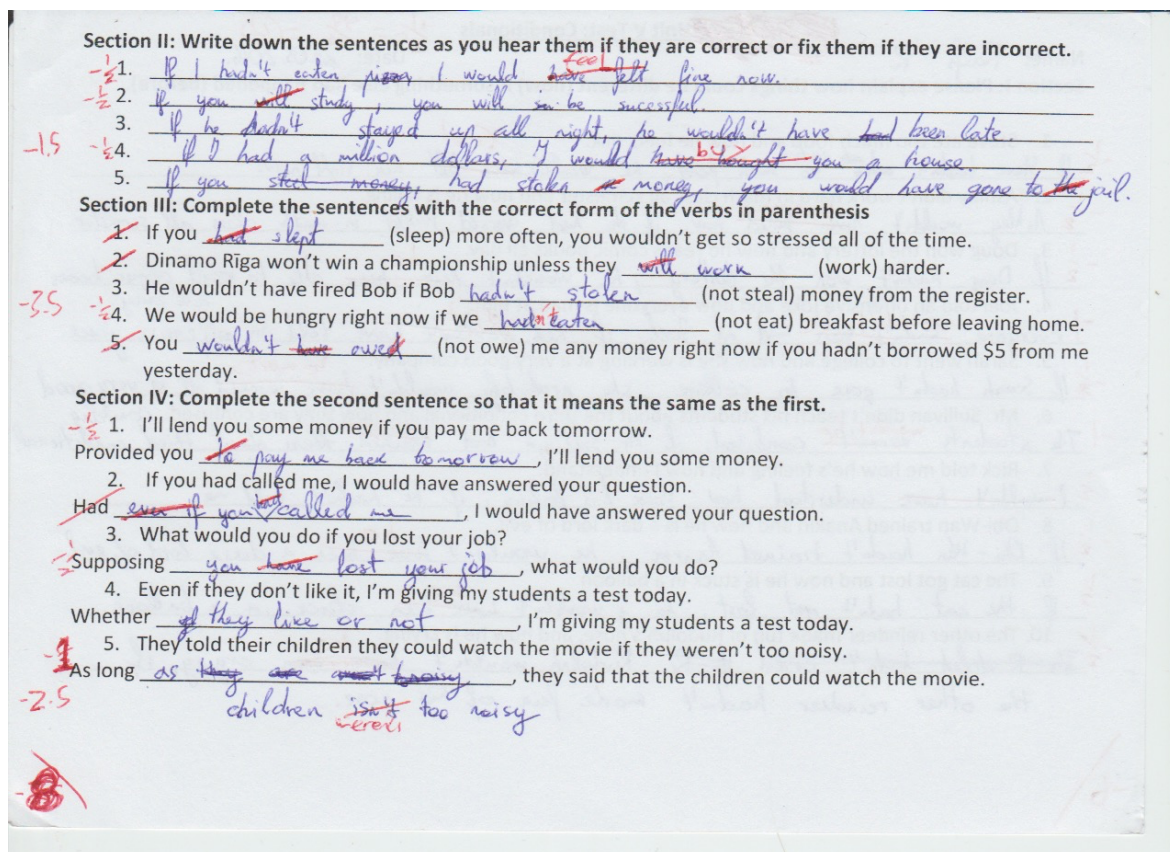 Section II: Write down the sentences as you hear them if they are correct or fix them if they are incorrect.
feel
-½ 1. If I hadn't eaten pizza, I would have felt fine now.
-½ 2. If you will study, you will so be sucessful.
3. If he hadn't stayed up all night, he wouldn't have had been late
buy
-1.5 -½ 4. if I had a million dollars, I would have bought you a house.
5. If you steal money, had stolen money, you would have gone to the jail.
Section III: Complete the sentences with the correct form of the verbs in parenthesis
1. If you had slept (sleep) more often, you wouldn't get so stressed all of the time.
2. Dinamo Rīga won't win a championship unless they will work (work) harder.
3. He wouldn't have fired Bob if Bob hadn't stolen (not steal) money from the register.
-3.5 -½ 4. We would be hungry right now if we hadn't eaten (not eat) breakfast before leaving home.
5. You wouldn't have owed (not owe) me any money right now if you hadn't borrowed $5 from me
yesterday.
Section IV: Complete the second sentence so that it means the same as the first.
-½ 1. I'll lend you some money if you pay me back tomorrow.
Provided you to pay me back tomorrow, I'll lend you some money.
2. If you had called me, I would have answered your question.
Had even if you had called me, I would have answered your question.
3. What would you do if you lost your job?
-½ Supposing you have lost your job, what would you do?
4. Even if they don't like it, I'm giving my students a test today.
Whether if they like or not, I'm giving my students a test today.
5. They told their children they could watch the movie if they weren't too noisy.
-1 As long as they are noisy, they said that the children could watch the movie.
-2.5 children isn't too noisy
weren't
-8